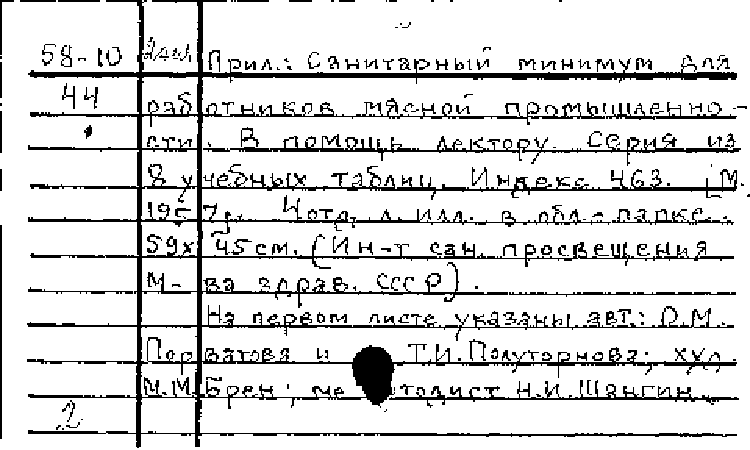 58-10 Прил.: Санитарный минимум для
44 работников мясной промышленно-
сти. В помощь лектору. Серия из
8 учебных таблиц. Индекс 463. [М.,
1957]. 4 отд. л. илл. в обл.-папке.
59х45 см. (Ин-т сан. просвещения
М-ва здрав. СССР).
На первом листе указаны авт.: О.М.
и Т.И. Полуторнова; худ.
М.М. Брен; методист Н.И. Шангин.
2